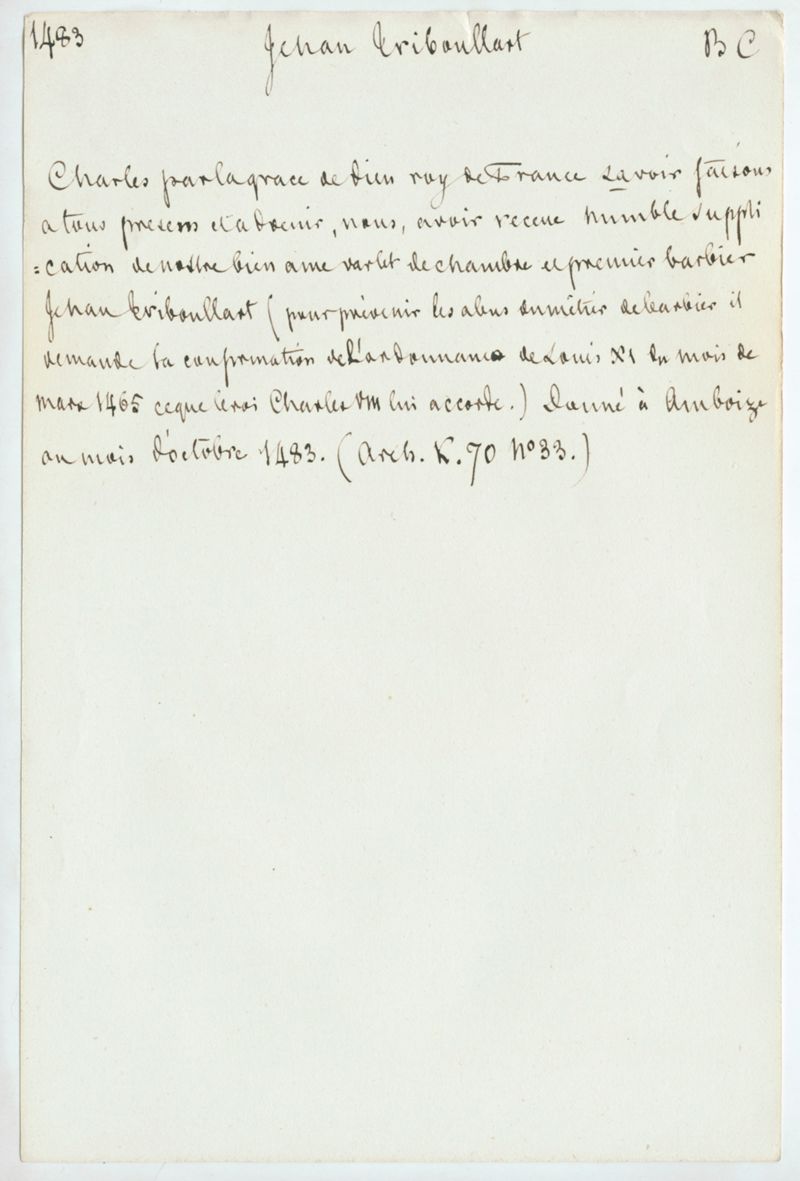 1483 Jehan Triboullart B C
Charles par la grace de Dieu roy de France savoir faisons
a tous presens et advenir, nous, avoir receue humble suppli
=cation de nostre bien ame varlet de chambre et premier barbier
Jehan Triboullart (pour prévenir les abus du métier de barbier il
demande la confirmation de l'ordonnance de Louis XI du mois de
mars 1465 ce que le roi Charles VIII lui accorde.) Donné à Amboize
au mois d'octobre 1483. (Arch. K. 70 No 33.)